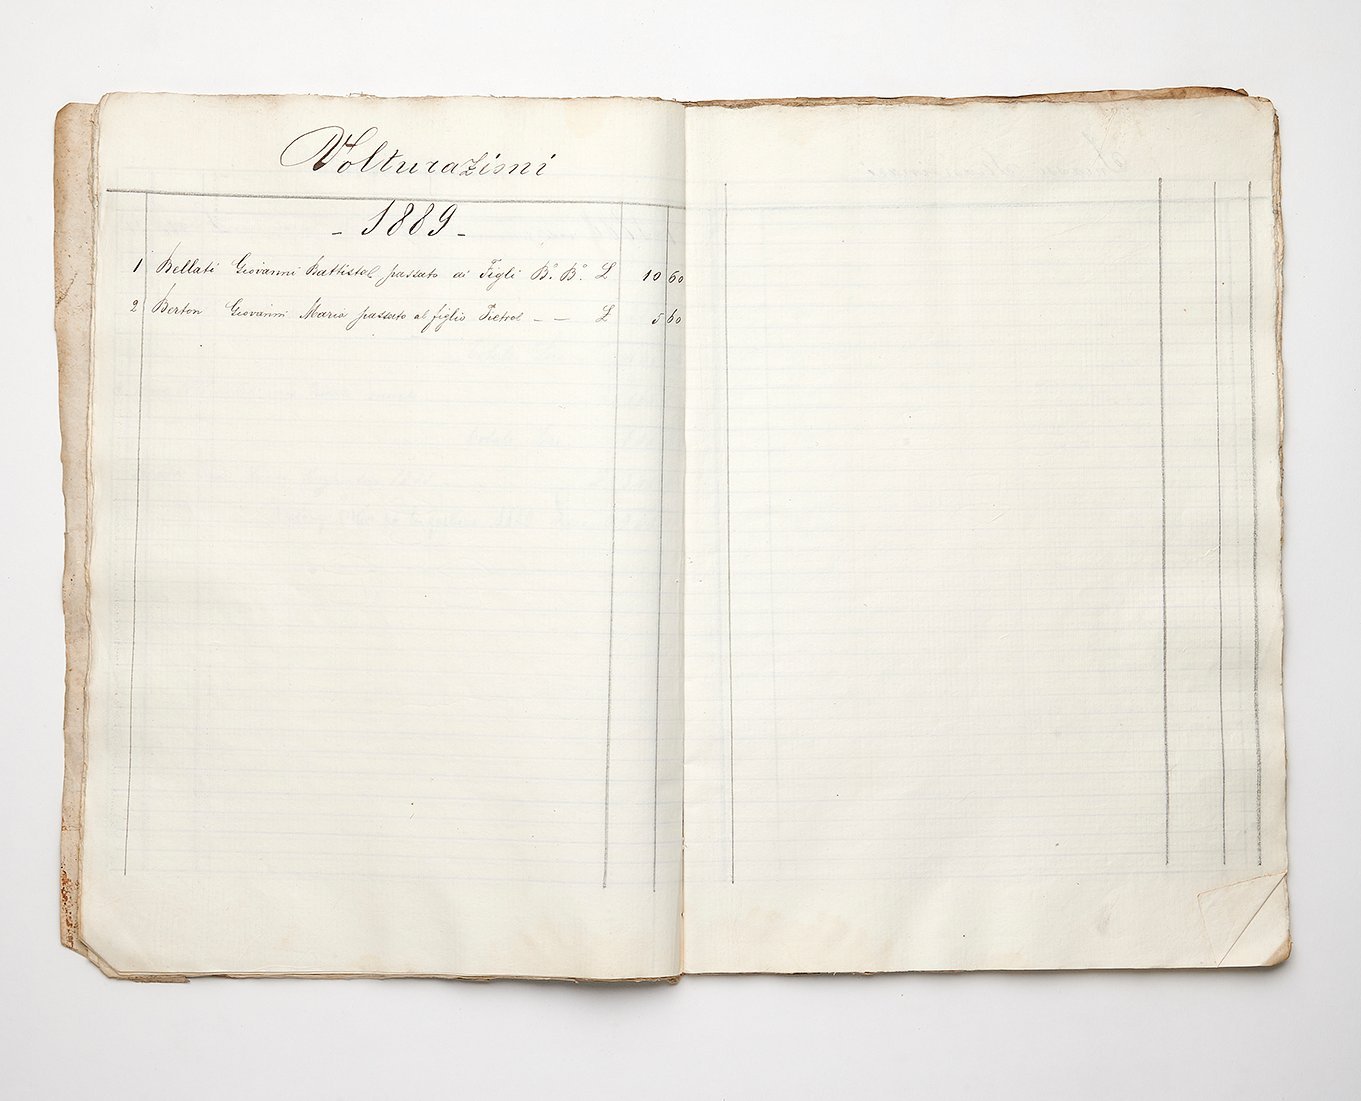 Volturazioni
- 1889 -
1 Bellati Giovanni Battista passato ai Figli Bº. Bº. L 10 60
2 Berton Giovanni Maria passato al figlio Pietro - - L 5 60